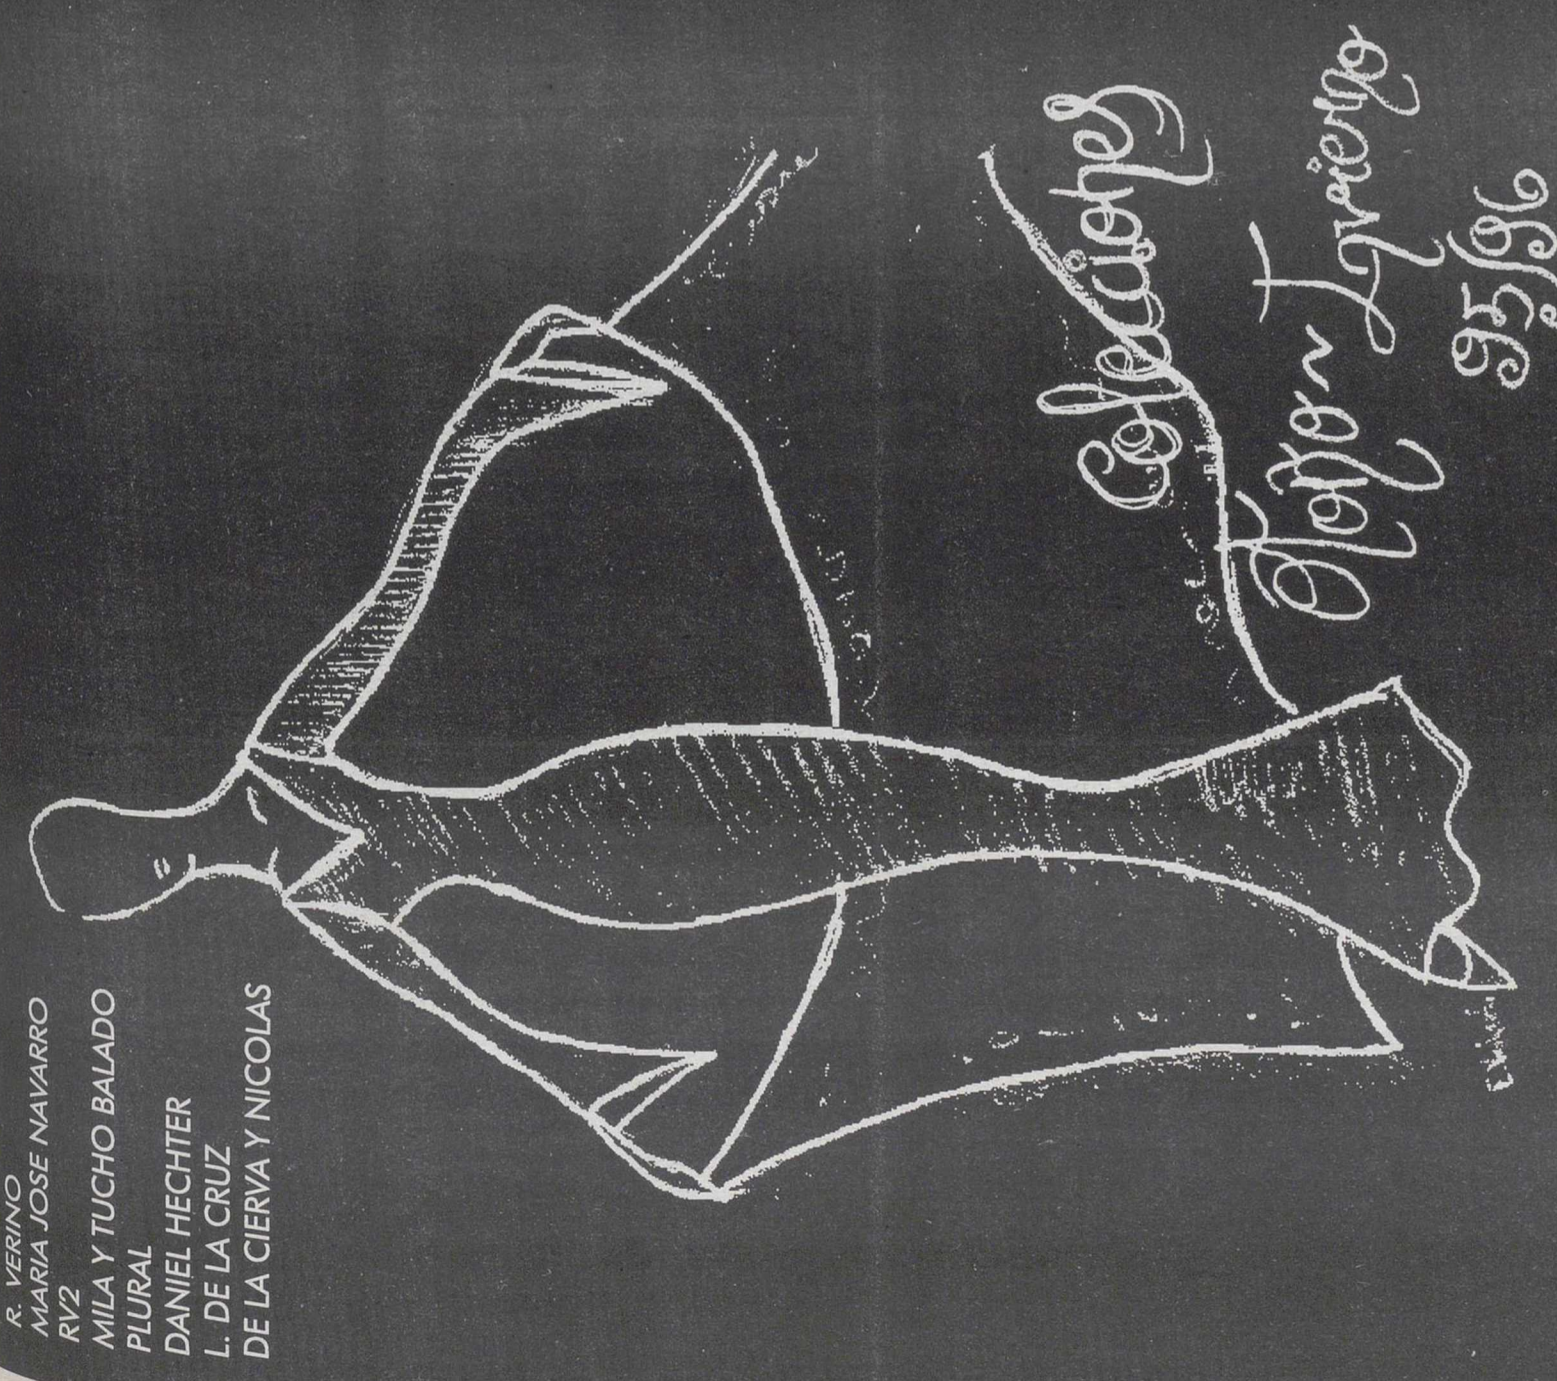 R. VERINO
MARIA JOSE NAVARRO
RV2
MILA Y TUCHO BALADO
PLURAL
DANIEL HECHTER
L. DE LA CRUZ
DE LA CIERVA Y NICOLAS
Colecciones
Otoño Invierno
95/96